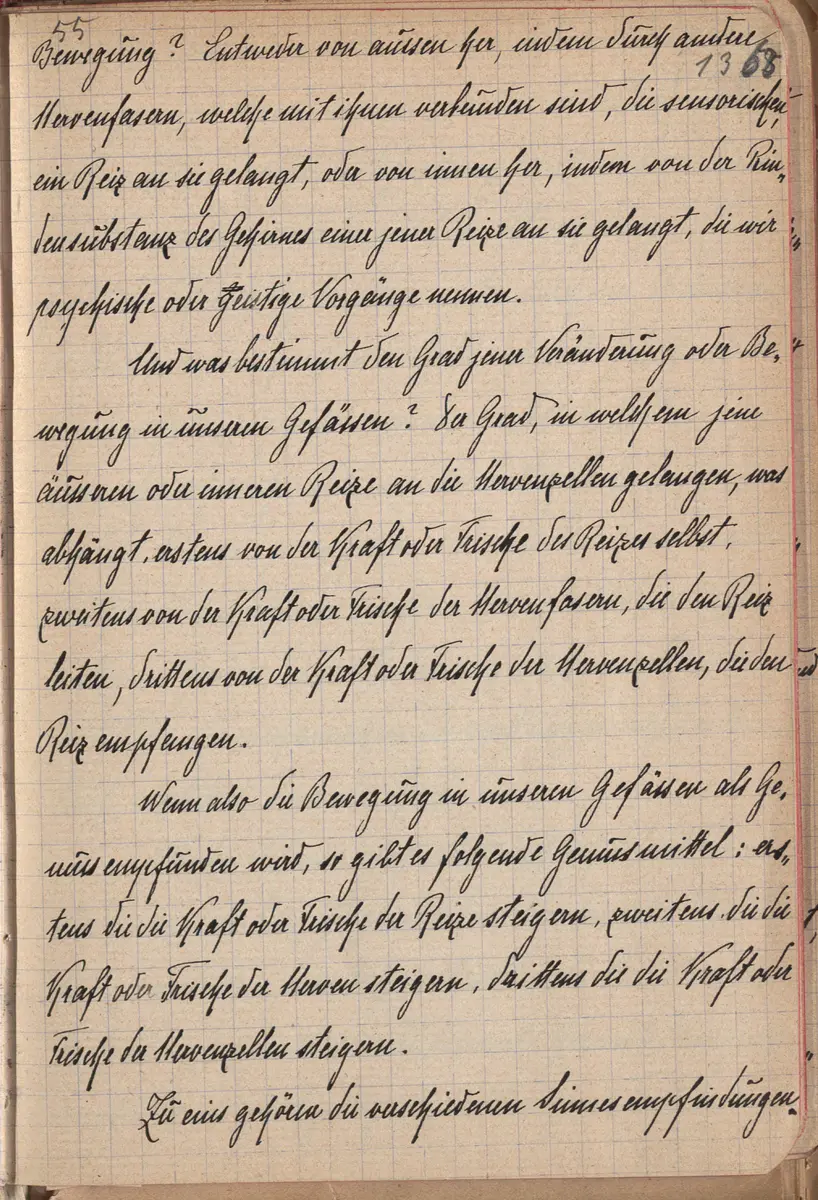 55
Bewegung? Entweder von aussen her, indem durch andere
13 68
Nervenfasern, welche mit ihnen verbunden sind, die sensorischen,
ein Reiz an sie gelangt, oder von innen her, indem von der Rin-
densubstanz des Gehirnes einer jener Reize an sie gelangt, die wir
psychische oder geistige Vorgänge nennen.
Und was bestimmt den Grad jener Veränderung oder Be-
wegung in unseren Gefässen? Der Grad, in welchem jene
äusseren oder inneren Reize an die Nervenzellen gelangen, was
abhängt, erstens von der Kraft oder Frische des Reizes selbst,
zweitens von der Kraft oder Frische der Nervenfasern, die den Reiz
leiten, drittens von der Kraft oder Frische der Nervenzellen, die den
Reiz empfangen.
Wenn also die Bewegung in unseren Gefässen als Ge-
nuss empfunden wird, so gibt es folgende Genussmittel: ers-
tens die die Kraft oder Frische der Reize steigern, zweitens die die
Kraft oder Frische der Nerven steigern, drittens die die Kraft oder
Frische der Nervenzellen steigern.
Zu eins gehören die verschiedenen Sinnesempfindungen-